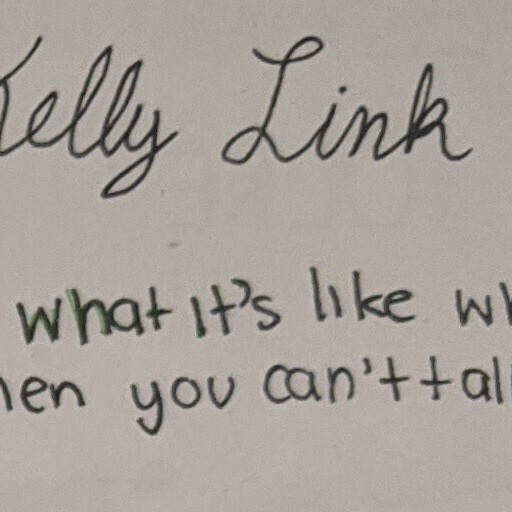 Kelly Link
what it's like wh
hen you can't tal